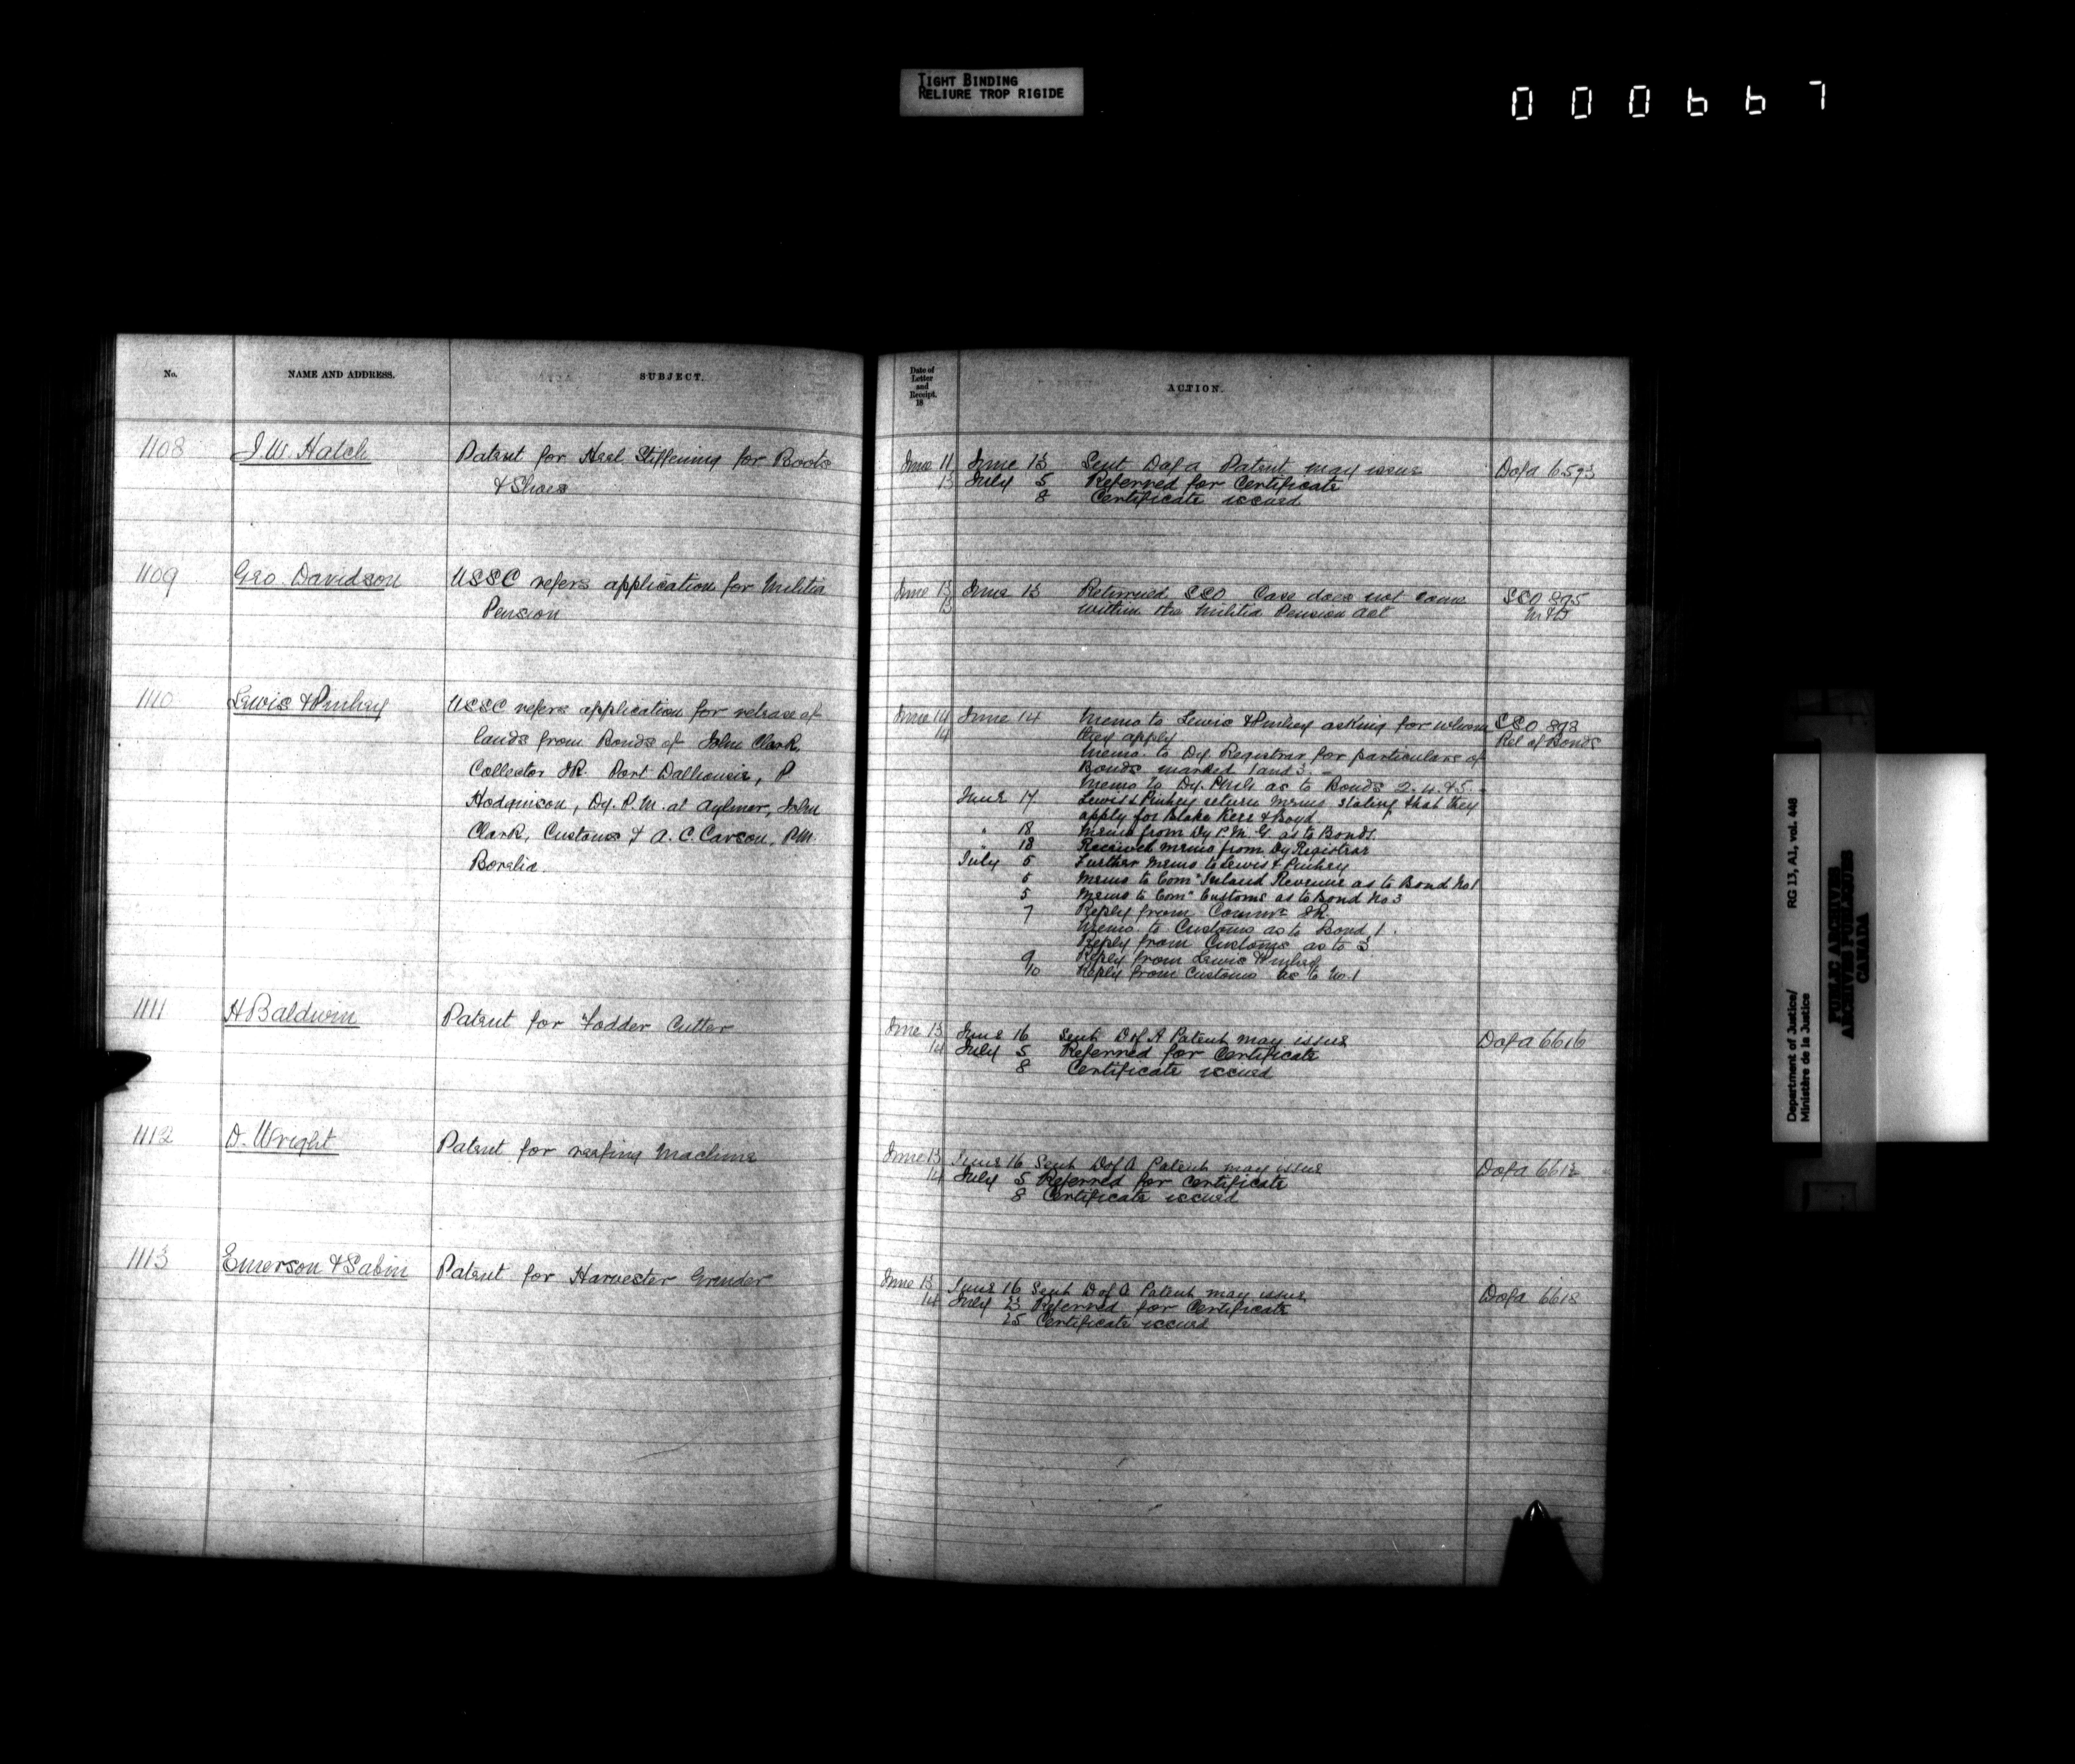 TIGHT BINDING
RELIURE TROP RIGIDE
000667
No.
NAME AND ADDRESS.
SUBJECT.
Date of
Letter
and
Receipt.
18
ACTION.
1108
J.W. Hatch
Patent for Heel Stiffening for Boots
& Shoes
June 11
13
June 13 Sent Dofa Patent may issue
July 5 Referred for Certificate
8 Certificate issued
Dofa 6593
1109
Geo Davidson
USSC refers application for Militia
Pension
June 13
13
June 13 Returned SSO Case does not come
within the Militia Pension Act
SSO 895
M&D
1110
Lewis & Pinhey
USSC refers application for release of
lands from Bonds of John Clark,
Collector IR. Port Dalhousie, P
Hodginson, Dy. P.M. at Aylmer, John
Clark, Customs & A. C. Carson, P.M.
Borelia.
June 14
14
June 14 Memo to Lewis & Pinhey asking for whom
they apply
Memo to Dy Registrar for particulars of
Bonds marked 1 and 3. –
Memo to Dy. as to Bonds 2. 4. & 5 –
June 17 Lewis & Pinhey return memo stating that they
apply for Blake Kerr & Boyd
" 18 Memo from Dy P.M.G. as to Bonds.
" 18 Received memo from Dy Registrar
July 5 Further memo to Lewis & Pinhey
5 Memo to Comr Inland Revenue as to Bond No 1
5 Memo to Comr Customs as to Bond No 3
7 Reply from Commr IR.
Memo to Customs as to Bond 1.
Reply from Customs as to 3
9 Reply from Lewis & Pinhey
10 Reply from Customs as to No. 1
SSO 898
Rel of Bonds
1111
H Baldwin
Patent for Fodder Cutter
June 13
14
June 16 Sent Dof A Patent may issue
July 5 Referred for Certificate
8 Certificate issued
Dofa 6616
1112
D. Wright
Patent for reefing Machine
June 13
14
June 16 Sent Dof A Patent may issue
July 5 Referred for Certificate
8 Certificate issued
Dofa 6612
1113
Emerson & Sabin
Patent for Harvester Grinder
June 13
14
June 16 Sent Dof A Patent may issue
July 23 Referred for Certificate
25 Certificate issued
Dofa 6618
Department of Justice/ RG 13, A1, vol. 448
Ministère de la Justice
PUBLIC ARCHIVES
ARCHIVES PUBLIQUES
CANADA